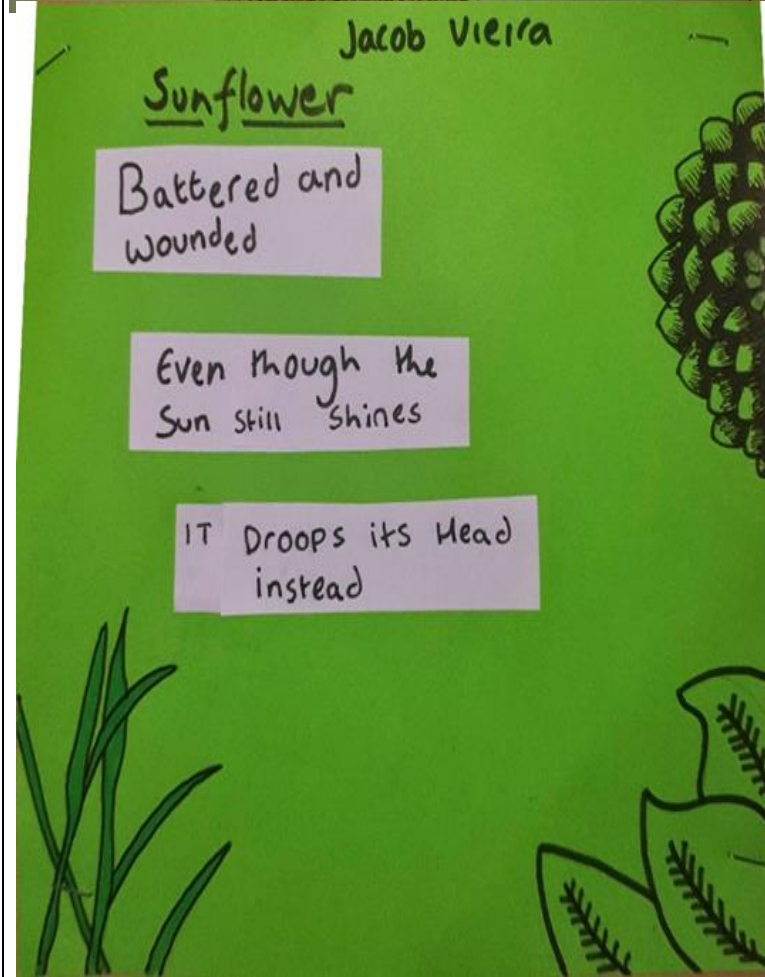 Jacob Vieira
Sunflower
Battered and
wounded
Even though the
Sun still shines
IT Droops its Head
instead